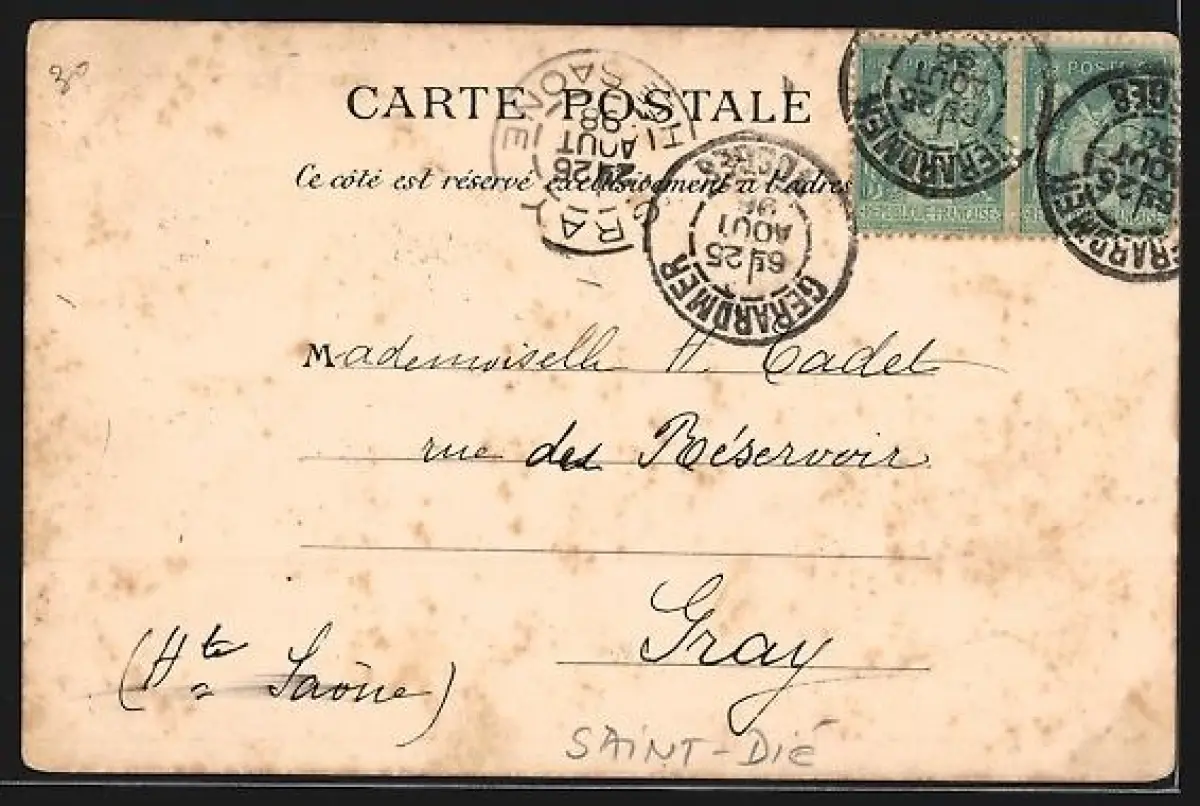 30
CARTE POSTALE
Ce côté est réservé exclusivement à l'adres
POSTE
POSTE
REPUBLIQUE FRANÇAISE
GERARDMER
25
AOUT
98
GERARDMER
VOSGES
6E 25
AOUT
98
GERARDMER
VOSGES
6E 25
AOUT
98
GRAY
HTE SAONE
26
AOUT
98
Mademoiselle H. Cadet
rue du Réservoir
Gray
(Hte Saône)
SAINT-DIÉ